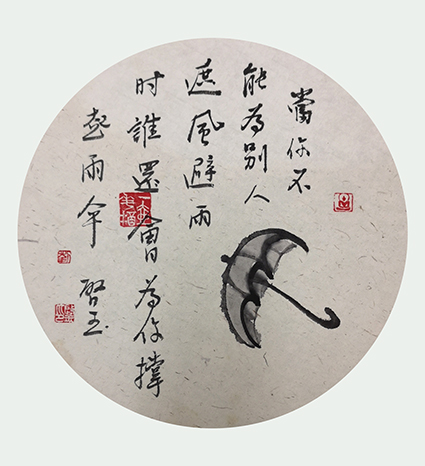 當你不
能為别人
遮風避雨
时誰還會為你撑
起雨伞
啓玉